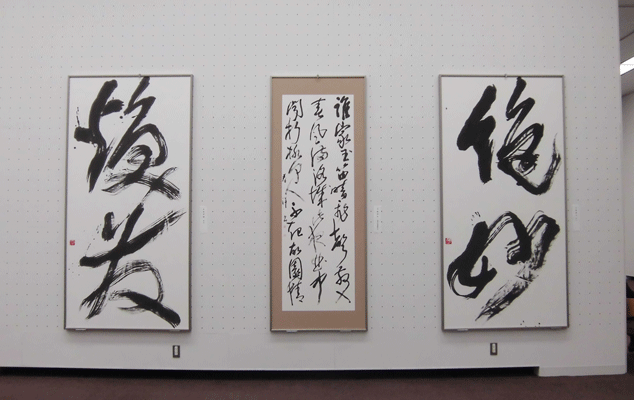 俊妙
誰家玉笛暗飛聲散入
春風満洛城此夜曲中
聞折柳何人不起故園情